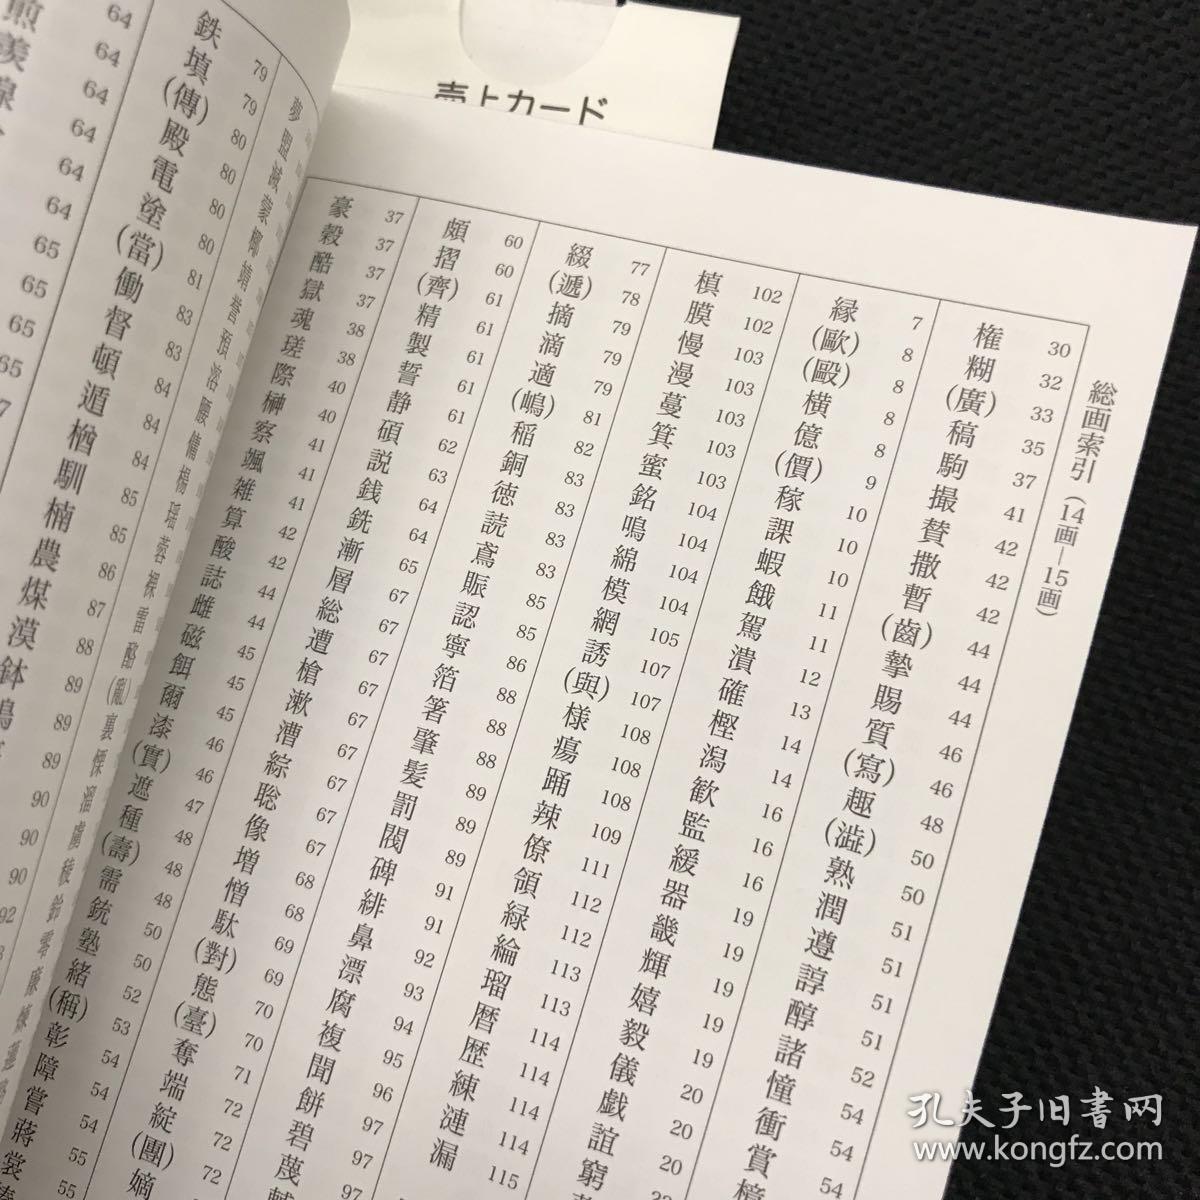 売上カード
総画索引（14画—15画）
30 32 33 35 37 41 42 42 42 44 44 44 46 46 48 50 50 51 51 51 51 52 54 54 54
権糊(廣)稿駒撮賛撒暫(齒)摯賜質(寫)趣(澁)熟潤遵諄醇諸憧衝賞樟
7 8 8 8 8 9 10 10 10 11 11 12 13 14 14 16 16 16 19 19 19 19 19 20 20 20
縁(歐)(毆)横億(價)稼課蝦餓駕潰確樫潟歓監緩器畿輝嬉毅儀戯誼窮
102 102 103 103 103 103 103 104 104 104 105 107 107 108 108 108 109 111 112 112 113 113 114 114 114 114 115
槙膜慢漫蔓箕蜜銘鳴綿模網誘(與)様瘍踊辣僚領緑綸瑠暦歴練漣漏
77 78 79 79 79 81 82 83 83 83 83 85 85 86 88 88 88 89 89 91 91 92 93 94 95 96 97 97 97
綴(遞)摘滴適(嶋)稲銅徳読鳶賑認寧箔箸肇髪罰閥碑緋鼻漂腐複聞餅碧蔑
60 60 61 61 61 61 61 62 63 64 64 65 67 67 67 67 67 67 67 67 68 68 69 69 70 70 71 72 72 72
頗摺(齊)精製誓静碩説銭銑漸層総遭槍漱漕綜聡像増憎駄(對)態(臺)奪端綻(團)嫡
37 37 37 38 38 40 40 41 41 41 42 42 44 44 45 45 45 46 46 47 48 48 48 50 50 52 53 54 54 54 55 55
豪穀酷獄魂瑳際榊察颯雑算酸誌雌磁餌爾漆(實)遮種(壽)需銃塾緒(稱)彰障嘗蔣裳
夢盟滅蒙椰靖誉預溶腰傭楊瑶蓉裸雷酪(亂)裏慄溜虜稜鈴零廉
79 79 80 80 80 80 81 83 83 84 84 84 85 85 86 87 88 89 89 89 90 90 90 92
鉄填(傳)殿電塗(當)働督頓遁楢馴楠農煤漠鉢
64 64 64 64 64 65 65 65 65
煎羨腺
孔夫子旧书网
www.kongfz.com